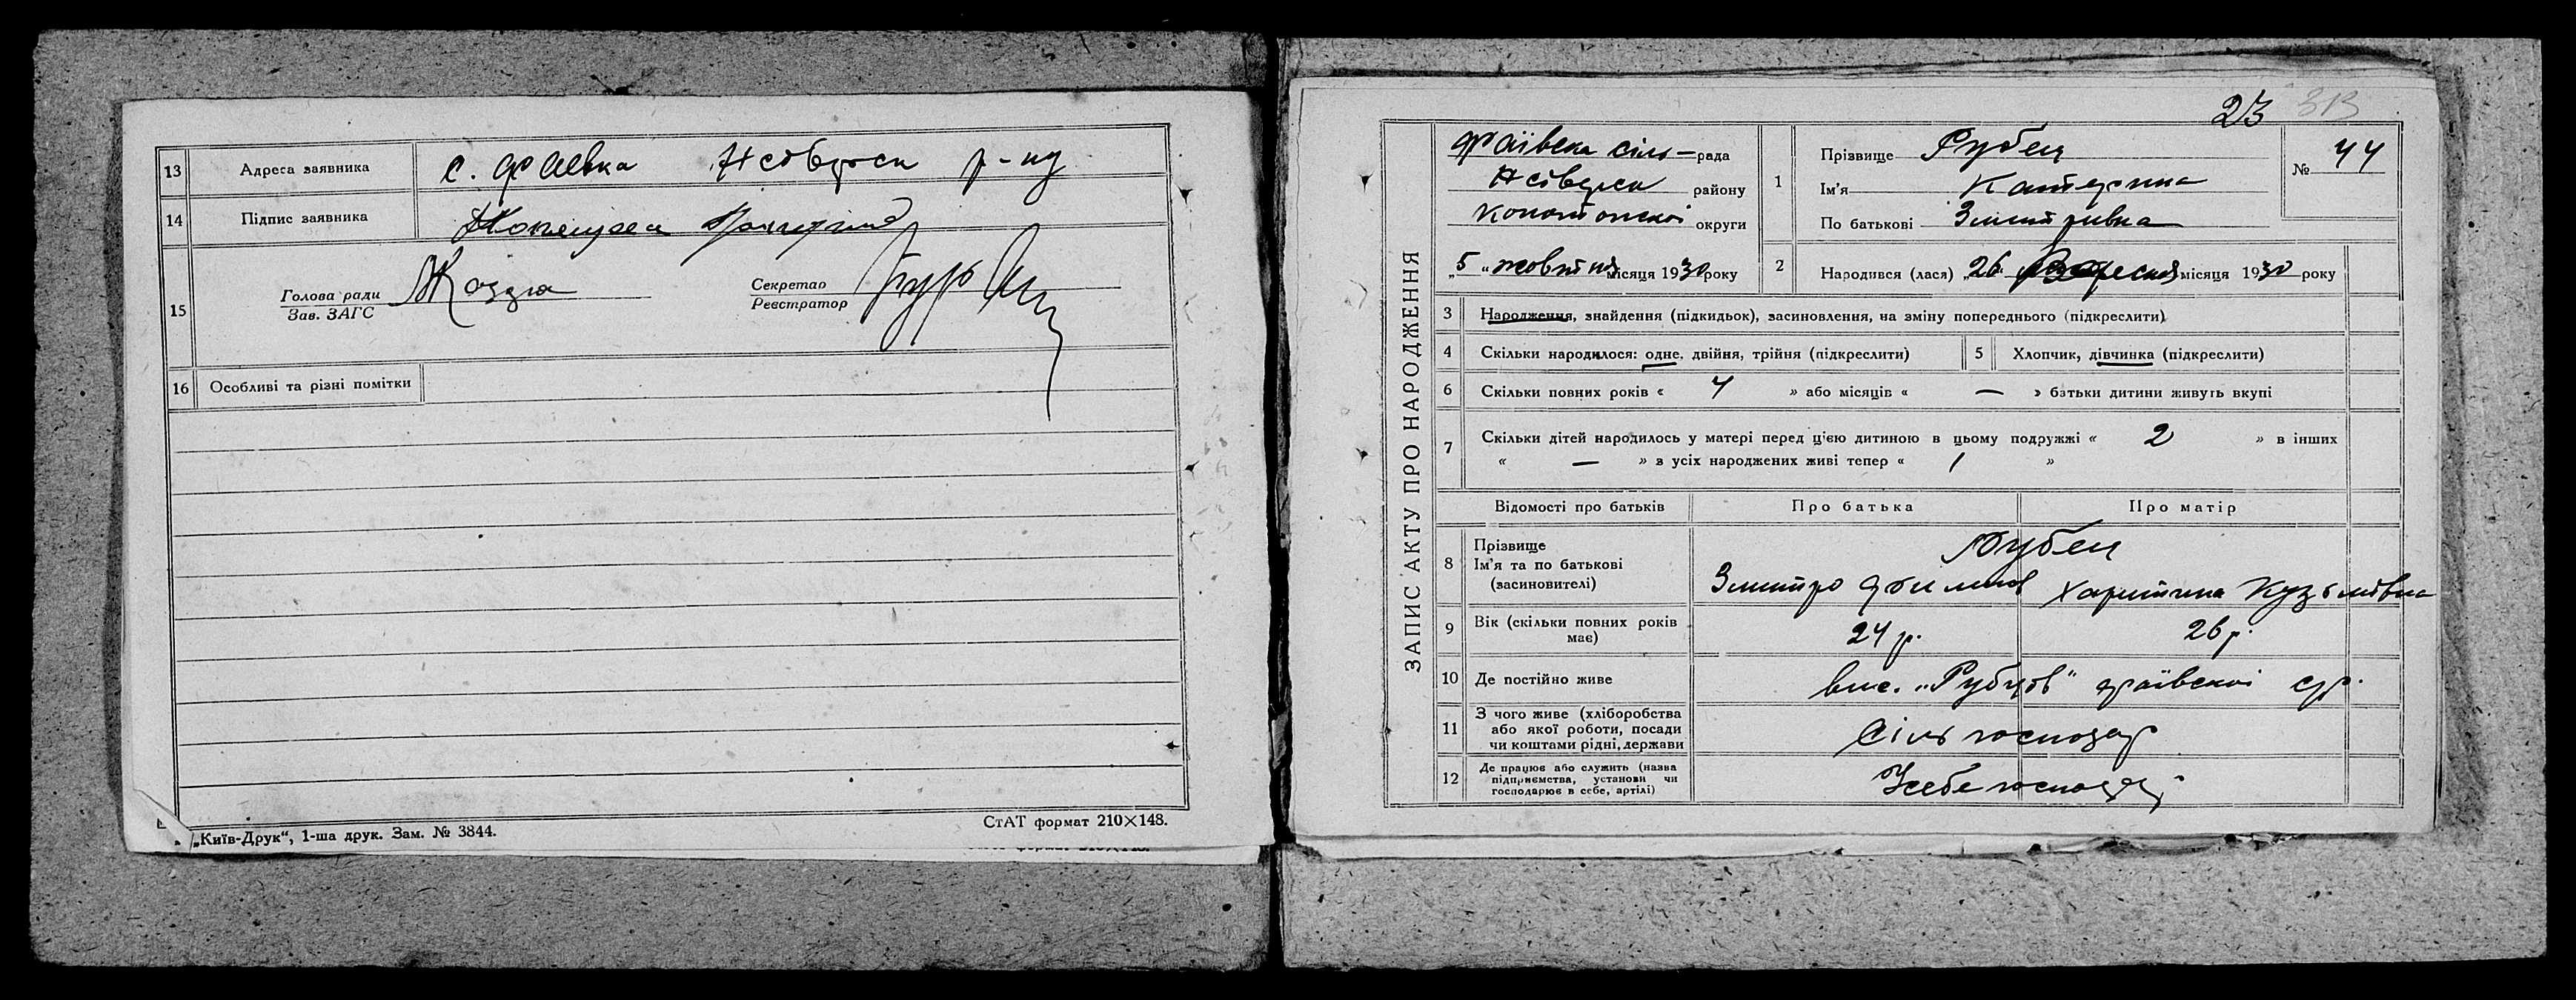 13 Адреса заявника с. Фаевка Н сіверськ р-ну
14 Підпис заявника
15 Голова ради Секретар
Зав. ЗАГС Реєстратор
16 Особливі та різні помітки
„Київ-Друк“, 1-ша друк. Зам. № 3844. СтАТ формат 210×148.
23 313
ЗАПИС АКТУ ПРО НАРОДЖЕННЯ
Фаївска сіль-рада
Н сіверск району
Конотопскої округи
„5“ жовтня місяця 1930 року
1 Прізвище Рубец № 44
Ім'я Катерина
По батькові Змитрівна
2 Народився (лася) „26 Вересня місяця 1930 року
3 Народження, знайдення (підкидьок), засиновлення, на зміну попереднього (підкреслити)
4 Скільки народилося: одне, двійня, трійня (підкреслити) 5 Хлопчик, дівчинка (підкреслити)
6 Скільки повних років « 4 » або місяців « — » батьки дитини живуть вкупі
7 Скільки дітей народилось у матері перед цією дитиною в цьому подружжі « 2 » в інших
« — » з усіх народжених живі тепер « 1 »
Відомості про батьків Про батька Про матір
8 Прізвище Рубец
Ім'я та по батькові
(засиновителі) Змитро Харитина Кузьмівна
9 Вік (скільки повних років має) 24 р. 26 р.
10 Де постійно живе вис. „Рубцов“ Фаївскої с/р.
11 З чого живе (хліборобства
або якої роботи, посади
чи коштами рідні, держави Сіль господар
12 Де працює або служить (назва
підприємства, установи чи
господарює в себе, артілі) У себе